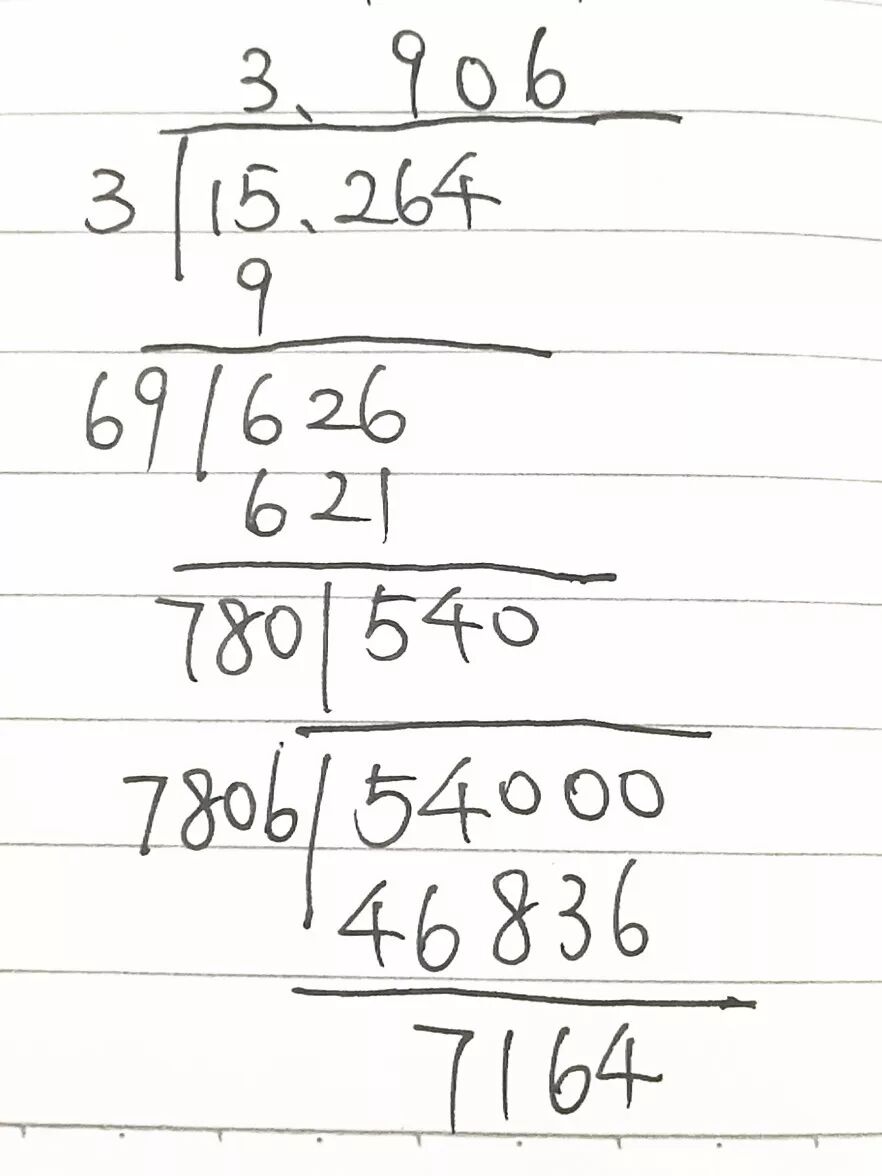 3. 906
3 15.264
9
69 626
621
780 540
7806 54000
46836
7164